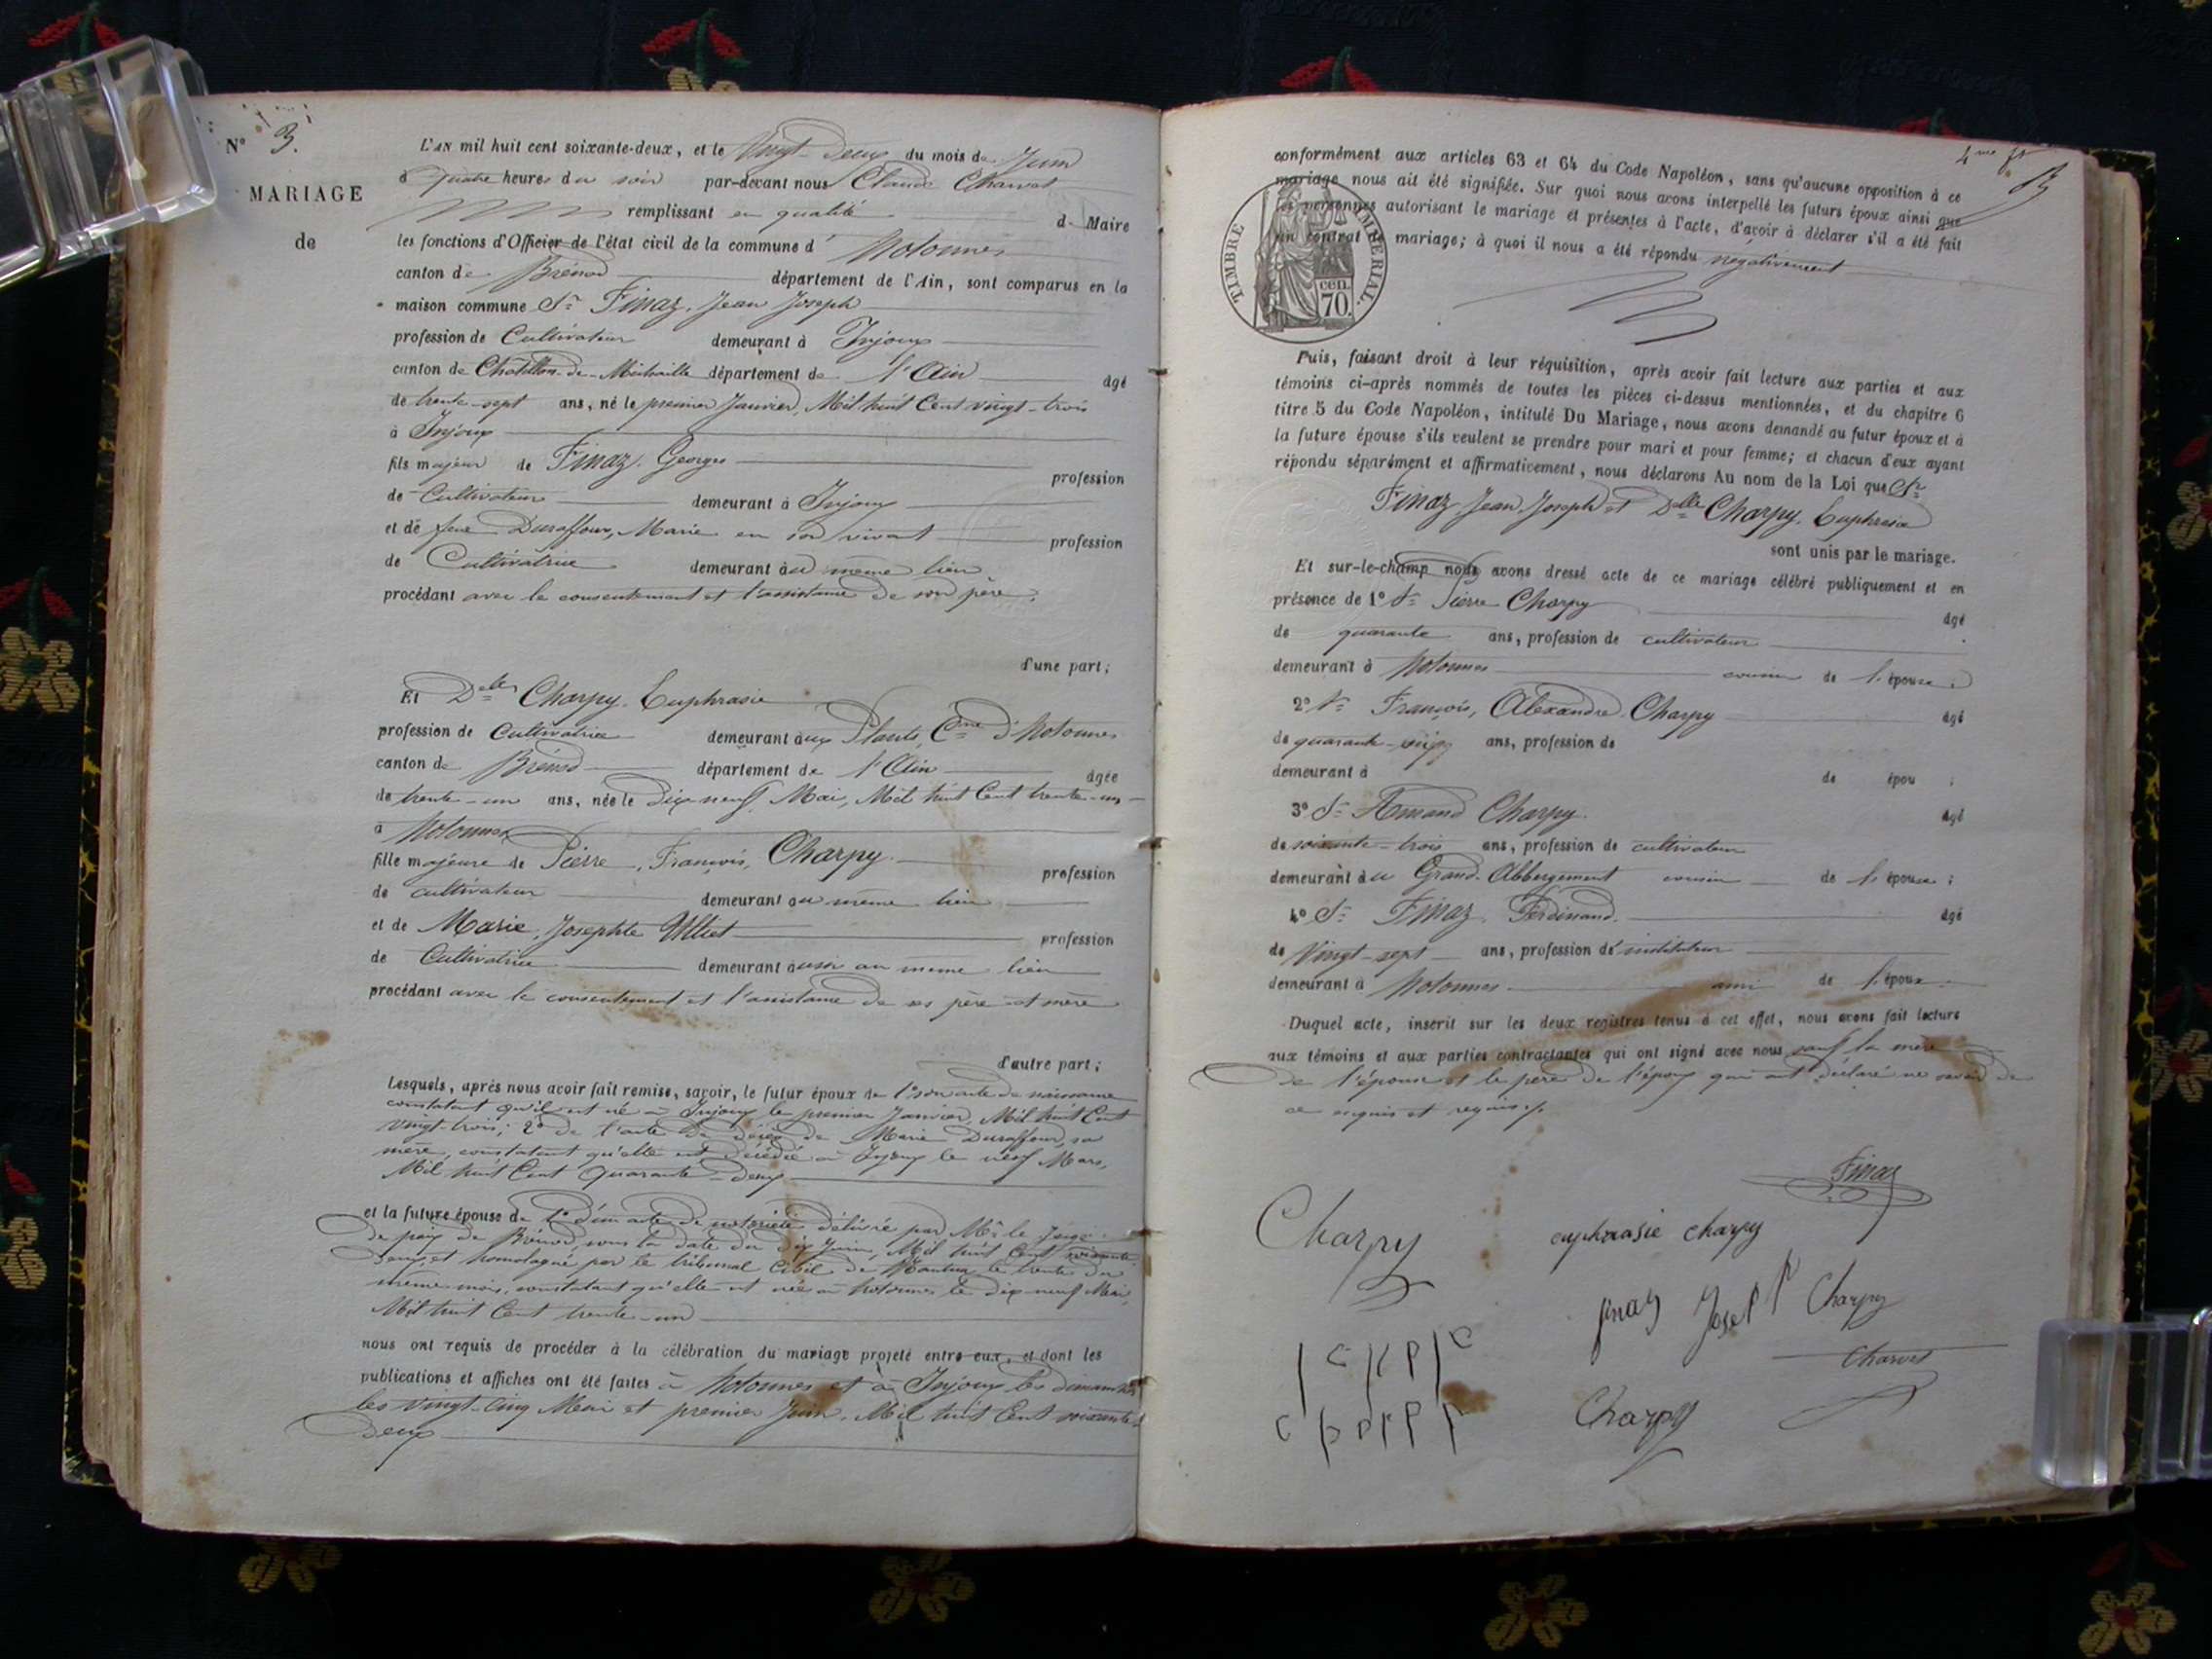 N° 3.
MARIAGE
de
L'AN mil huit cent soixante-deux, et le Vingt-Deux du mois de Juin
à quatre heures du soir par-devant nous Claude Charvet
remplissant en qualité de Maire
les fonctions d'Officier de l'état civil de la commune d' Hotonnes
canton de Brénod département de l'Ain, sont comparus en la
maison commune Sr Finaz, Jean Joseph
profession de Cultivateur demeurant à Injoux
canton de Châtillon-de-Michaille département de l'Ain âgé
de trente-sept ans, né le premier Janvier, Mil huit Cent vingt-trois
à Injoux
fils majeur de Finaz, Georges profession
de Cultivateur demeurant à Injoux
et de feue Duraffour, Marie en son vivant profession
de Cultivatrice demeurant au même lieu
procédant avec le consentement et l'assistance de son père,
d'une part;
Et Delle Charpy, Euphrasie
profession de Cultivatrice demeurant aux Plants, Cne d'Hotonnes
canton de Brénod département de l'Ain âgée
de trente-un ans, née le Dix neuf Mai, Mil huit Cent trente-un
à Hotonnes
fille majeure de Pierre, François, Charpy profession
de cultivateur demeurant au même lieu
et de Marie, Josephte Ulliet profession
de Cultivatrice demeurant aussi au même lieu
procédant avec le consentement et l'assistance de ses père et mère
d'autre part;
Lesquels, après nous avoir fait remise, savoir, le futur époux de 1° son acte de naissance
constatant qu'il est né à Injoux le premier Janvier, Mil huit Cent
vingt-trois; 2° de l'acte de décès de Marie Duraffour, sa
mère, constatant qu'elle est décédée à Injoux le neuf Mars,
Mil huit Cent Quarante-deux
et la future épouse de 1° d'un acte de notoriété délivré par Mr le Juge
de paix de Brénod, sous la date du dix Juin, Mil huit Cent soixante
deux, et homologué par le tribunal Civil de Nantua le trente du
même mois, constatant qu'elle est née à Hotonnes le dix neuf Mai,
Mil huit Cent trente-un
nous ont requis de procéder à la célébration du mariage projeté entre eux, et dont les
publications et affiches ont été faites à Hotonnes et à Injoux les dimanches
les vingt-cinq Mai et premier Juin, Mil huit Cent soixante
Deux
4me ft
conformément aux articles 63 et 64 du Code Napoléon, sans qu'aucune opposition à ce
mariage nous ait été signifiée. Sur quoi nous avons interpellé les futurs époux ainsi que
les personnes autorisant le mariage et présentes à l'acte, d'avoir à déclarer s'il a été fait
un contrat de mariage; à quoi il nous a été répondu négativement
TIMBRE IMPERIAL.
cen.
70.
Puis, faisant droit à leur réquisition, après avoir fait lecture aux parties et aux
témoins ci-après nommés de toutes les pièces ci-dessus mentionnées, et du chapitre 6
titre 5 du Code Napoléon, intitulé Du Mariage, nous avons demandé au futur époux et à
la future épouse s'ils veulent se prendre pour mari et pour femme; et chacun d'eux ayant
répondu séparément et affirmativement, nous déclarons Au nom de la Loi que Sr
Finaz Jean Joseph et Delle Charpy, Euphrasie
sont unis par le mariage.
Et sur-le-champ nous avons dressé acte de ce mariage célébré publiquement et en
présence de 1° Sr Pierre Charpy âgé
de quarante ans, profession de cultivateur
demeurant à Hotonnes cousin de l'épouse;
2° Sr François, Alexandre Charpy âgé
de quarante- ans, profession de
demeurant à de épou ;
3° Sr Amand Charpy. âgé
de soixante-trois ans, profession de cultivateur
demeurant au Grand-Abbergement cousin de l'épouse;
4° Sr Finaz, Ferdinand. âgé
de Vingt-sept ans, profession d'instituteur
demeurant à Hotonnes ami de l'époux.
Duquel acte, inscrit sur les deux registres tenus à cet effet, nous avons fait lecture
aux témoins et aux parties contractantes qui ont signé avec nous sauf la mère
de l'épouse et le père de l'époux qui ont déclaré ne savoir de
ce enquis et requis
Finaz
Charpy euphrasie charpy
finaz Josep Charpy
Charvet
Charpy